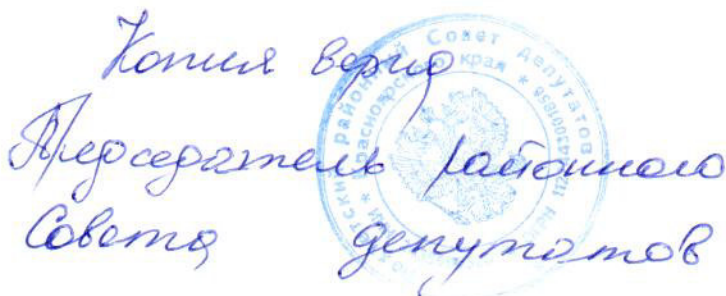 Копия верна
Председатель районного
Совета депутатов
районный Совет депутатов
Красноярского края *